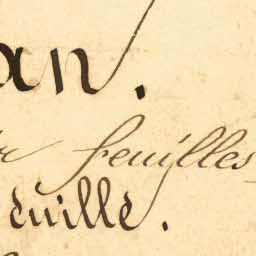 an.
r feuilles
euille.